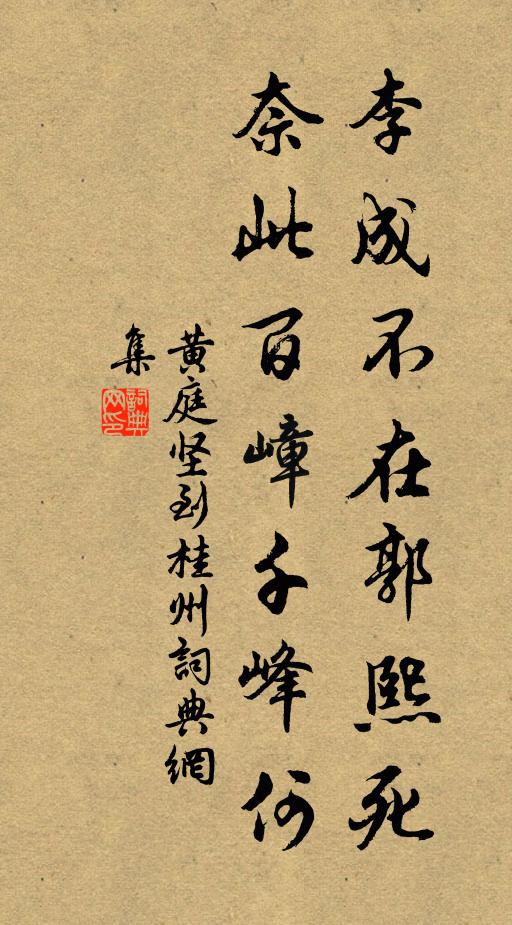 李成不在郭熙死
奈此百嶂千峰何
黄庭坚到桂州詞典網
集
詞典網印